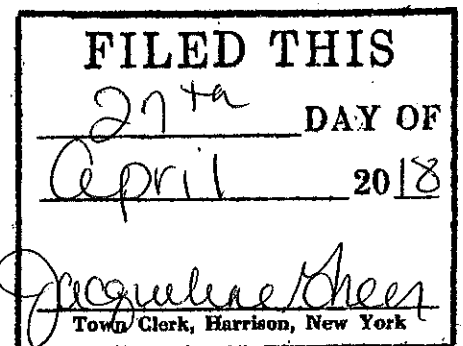 FILED THIS
27th DAY OF
April 2018
Jacqueline Greer
Town Clerk, Harrison, New York